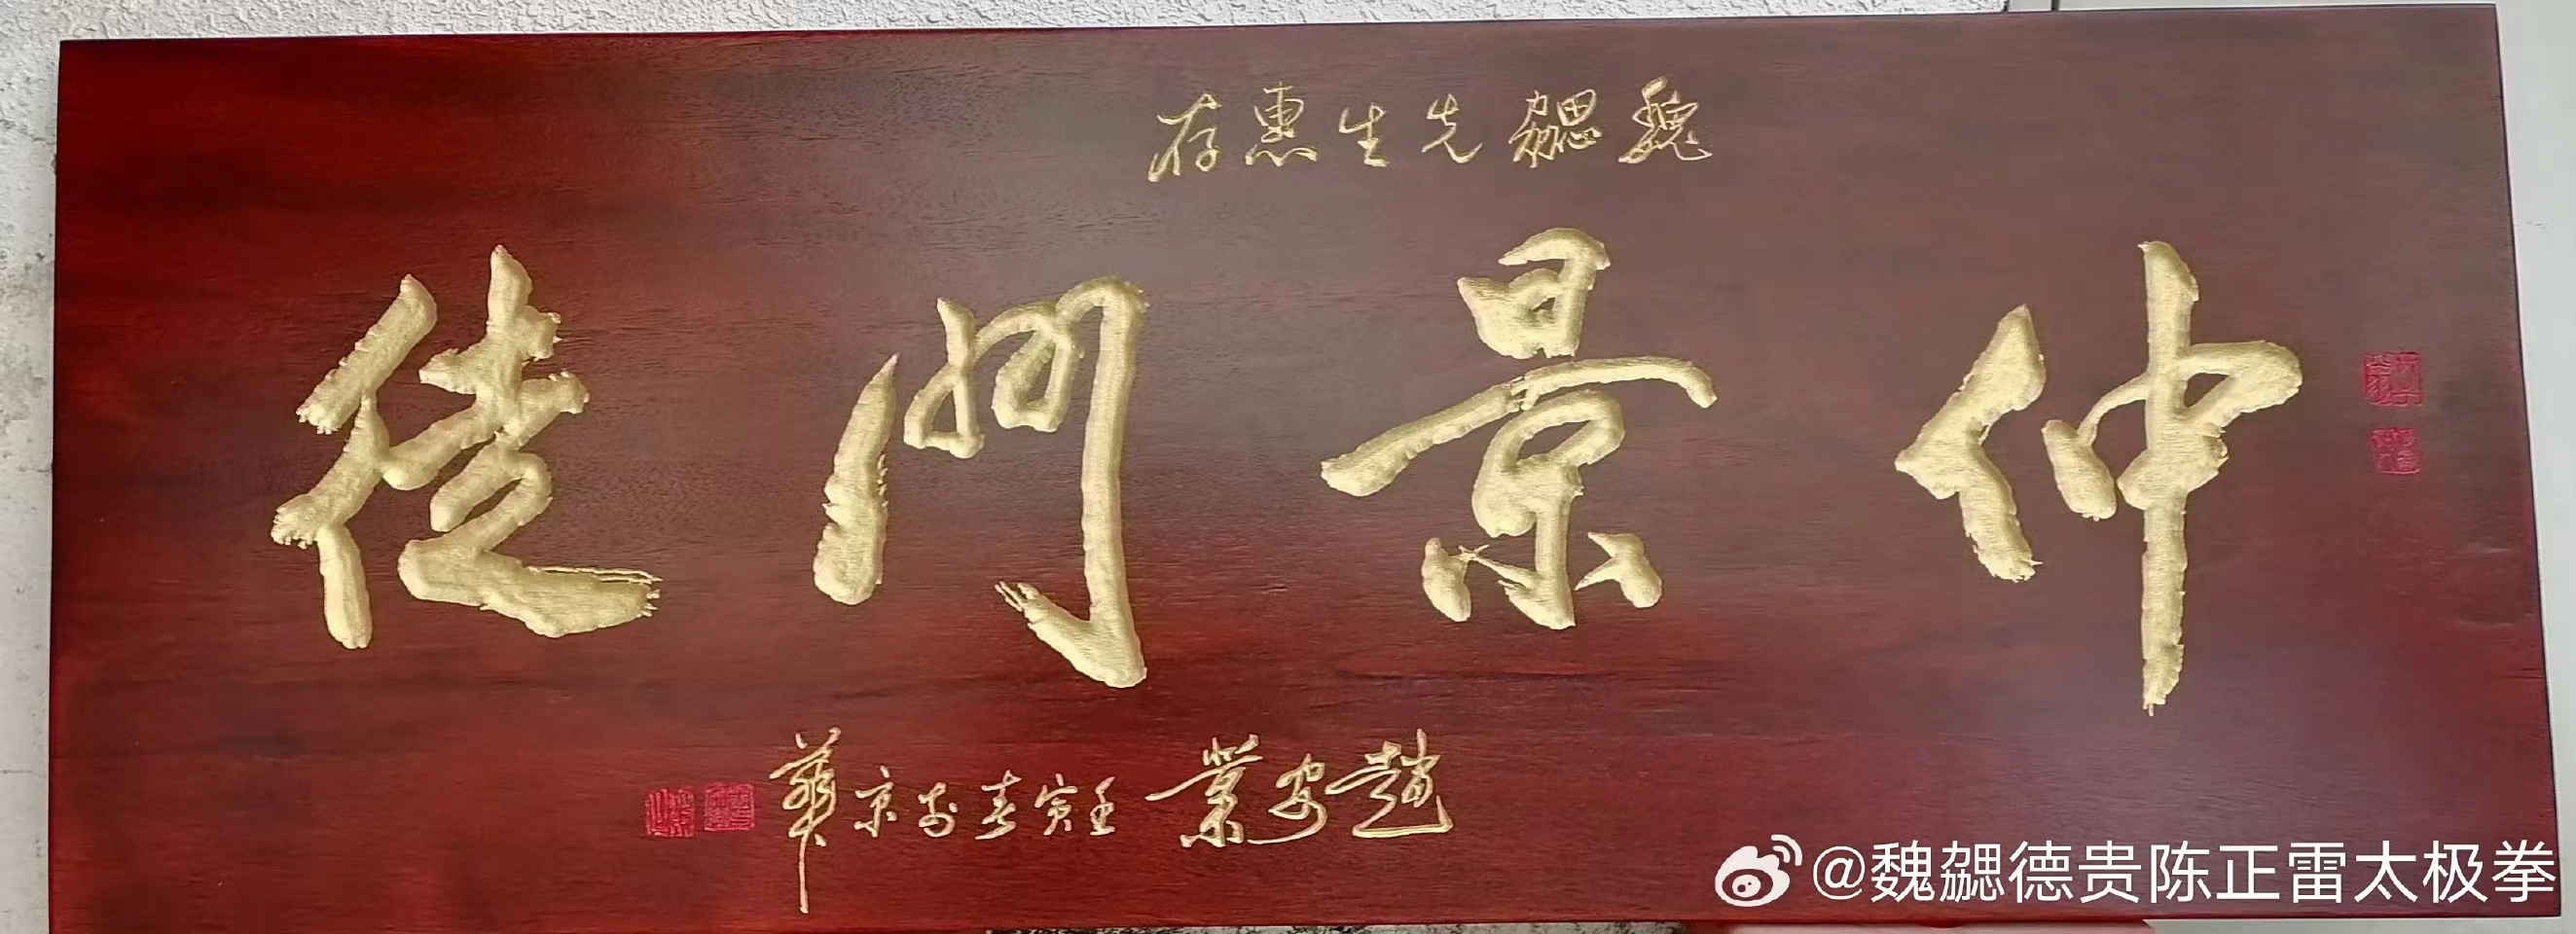 魏勰先生惠存
仲景門徒
趙安業壬寅春於京華
@魏勰德贵陈正雷太极拳